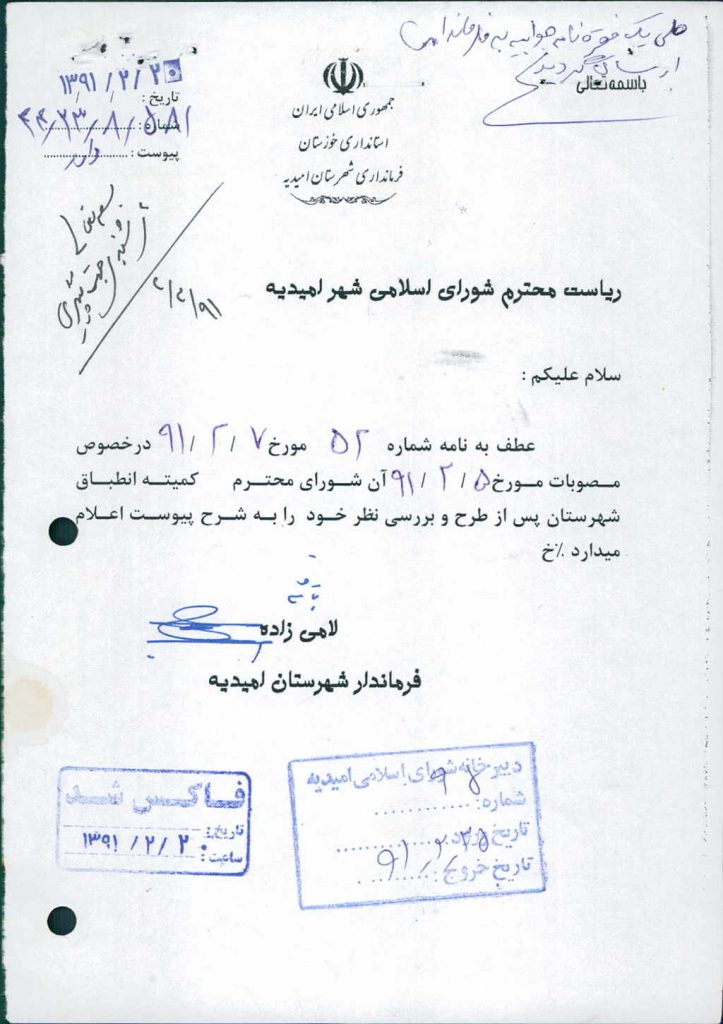 طی یک فقره نامه جوابیه به فرمانداری
ارسال گردید
باسمه تعالی
جمهوری اسلامی ایران
استانداری خوزستان
فرمانداری شهرستان امیدیه
تاریخ : ۱۳۹۱/۲/۲۰
شماره :
پیوست : دارد
۹۱/۲/۲
ریاست محترم شورای اسلامی شهر امیدیه
سلام علیکم :
عطف به نامه شماره ۵۲ مورخ ۹۱/۲/۷ درخصوص
مصوبات مورخ ۹۱/۲/۵ آن شورای محترم کمیته انطباق
شهرستان پس از طرح و بررسی نظر خود را به شرح پیوست اعلام
میدارد ./خ
لامی زاده
فرماندار شهرستان امیدیه
فاکس شد
تاریخ: ۱۳۹۱/۲/۲۰
ساعت:
دبیرخانه شورای اسلامی امیدیه
شماره:
تاریخ ورود: ۹۱/۲/۲۵
تاریخ خروج: